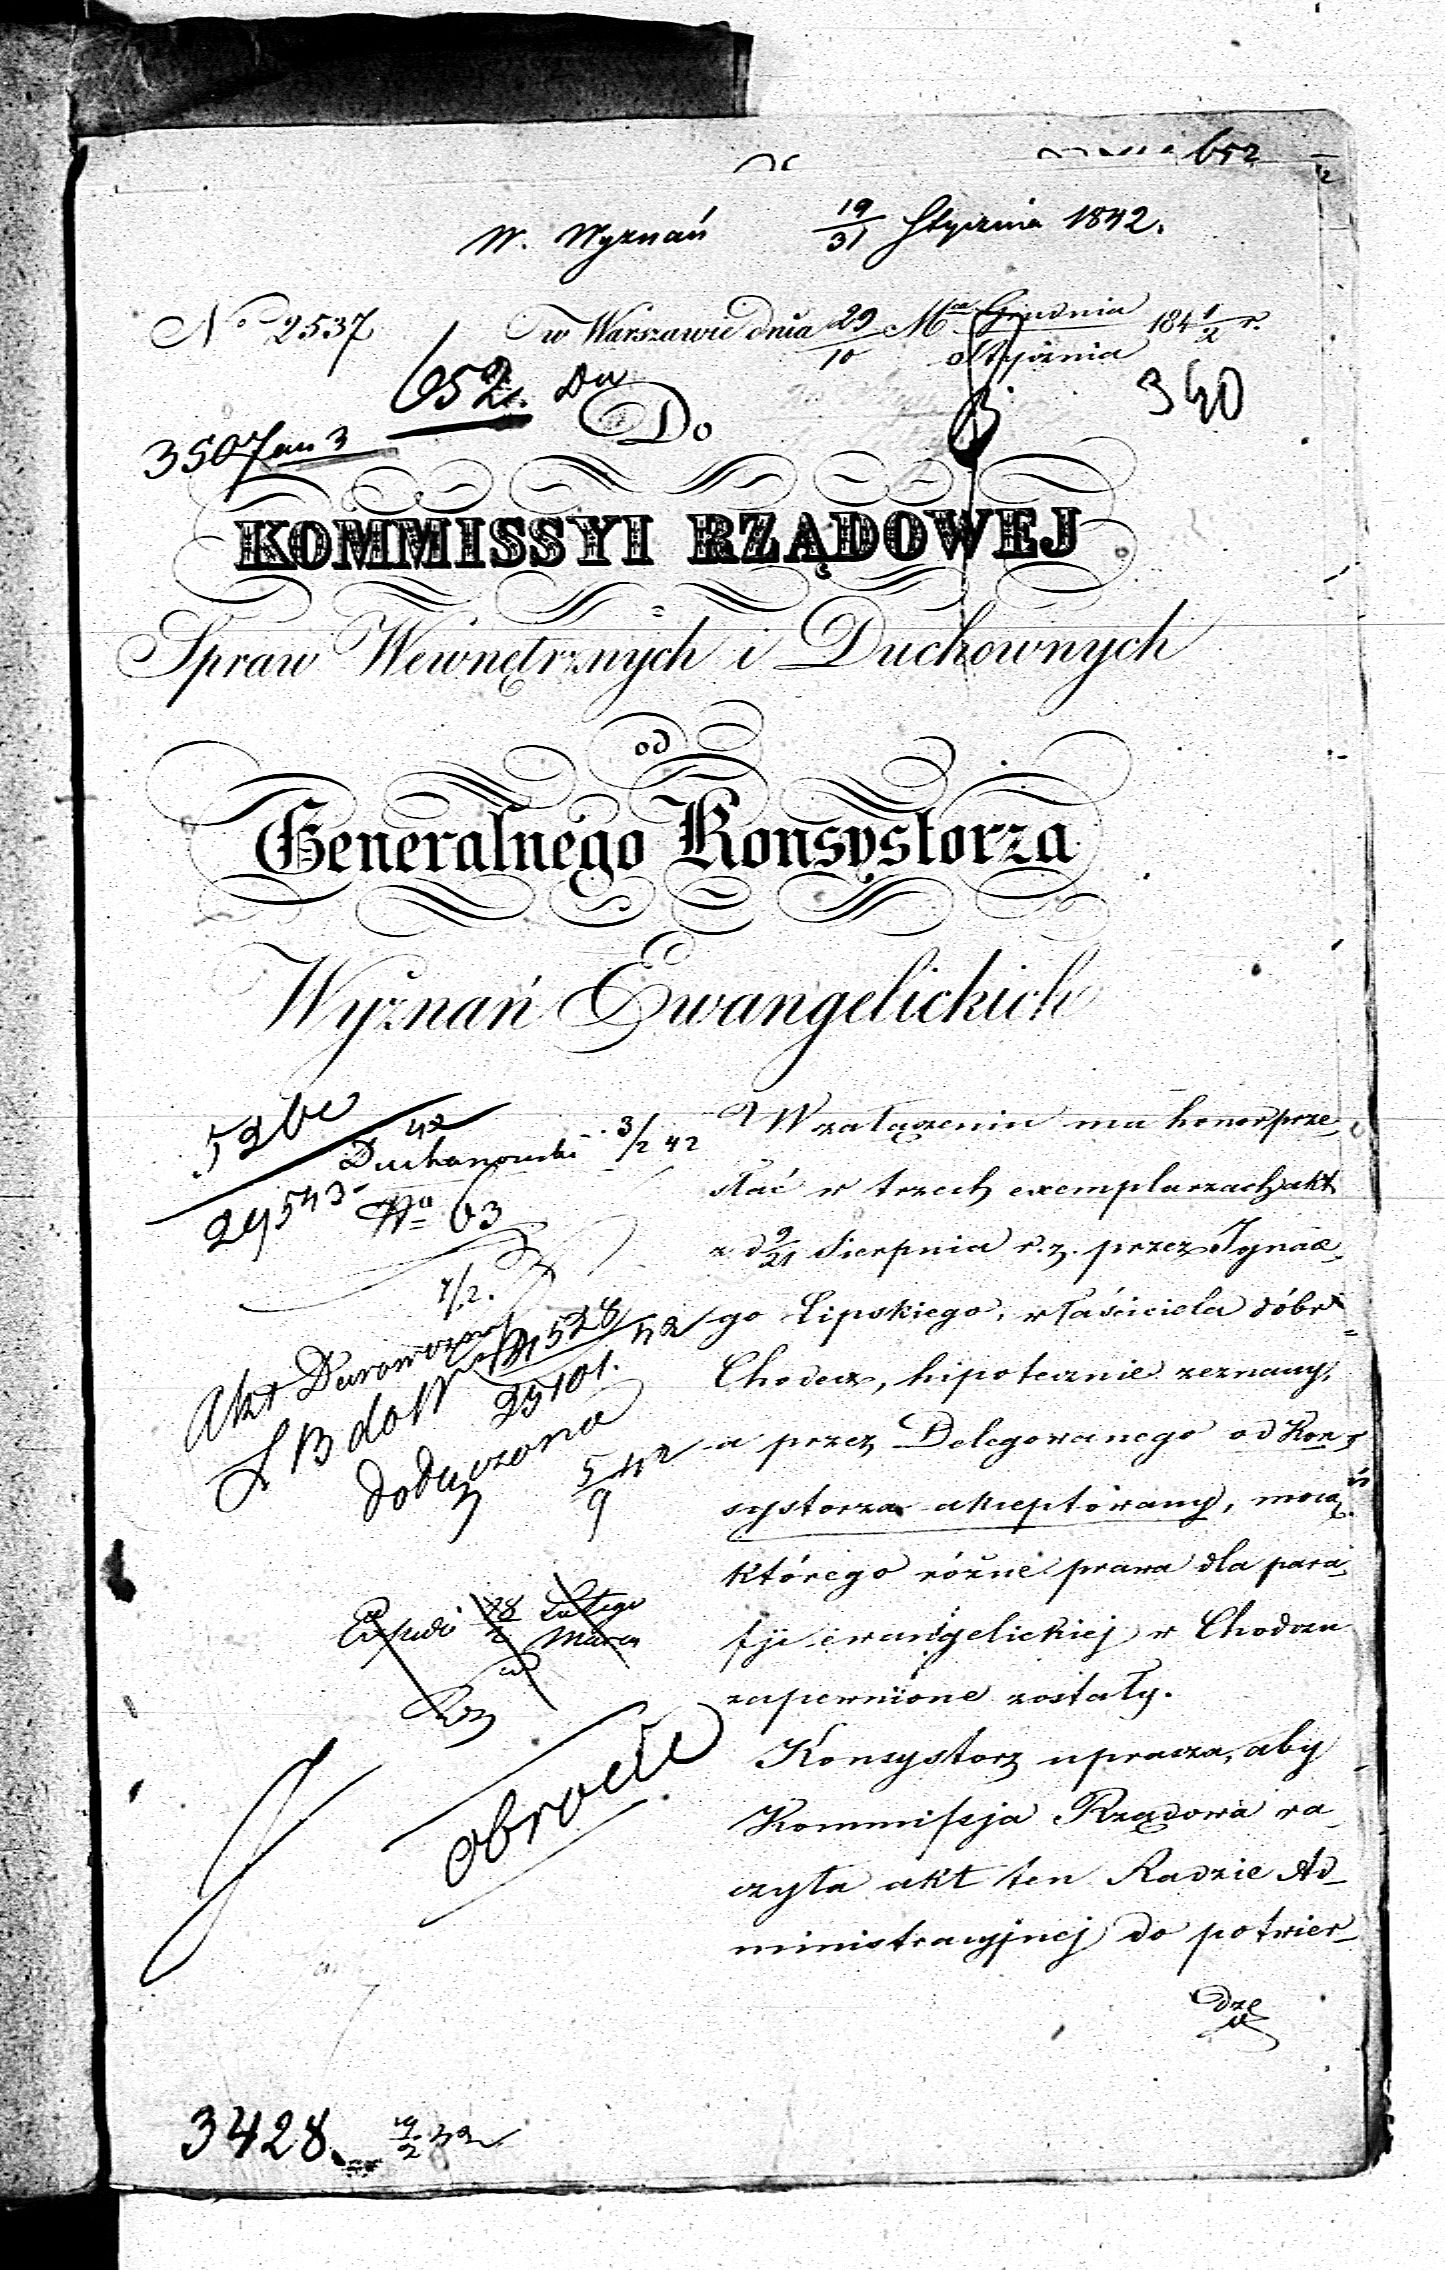 652
W. Wyznań 19/31 Stycznia 1842.
No 2537 w Warszawie dnia 29/10 Mca Grudnia/Stycznia 184 1/2 r.
652. Du
Do
340
3507
KOMMISSYI RZĄDOWEJ
Spraw Wewnętrznych i Duchownych
od
Generalnego Konsystorza
Wyznań Ewangelickich
42
3/2 42
29543
No 63
7/2.
Akt Darowizny
528
42
25101.
dołączono
5/9 42
Lutego
Marca
obrocie
W załączeniu ma honor prze-
słać w trzech exemplarzach akt
z d 9/21 Sierpnia r. z. przez Ignac-
go Lipskiego, właściciela dóbr
Chodecz, hipotecznie zeznany,
a przez Delegowanego od Kon-
systorza akceptowany, mocą
którego różne prawa dla para-
fji ewangelickiej w Chodczu
zapewnione zostały.
Konsystorz uprasza, aby
Kommissja Rządowa ra-
czyła akt ten Radzie Ad-
ministracyjnej do potwier-
dze
3428.